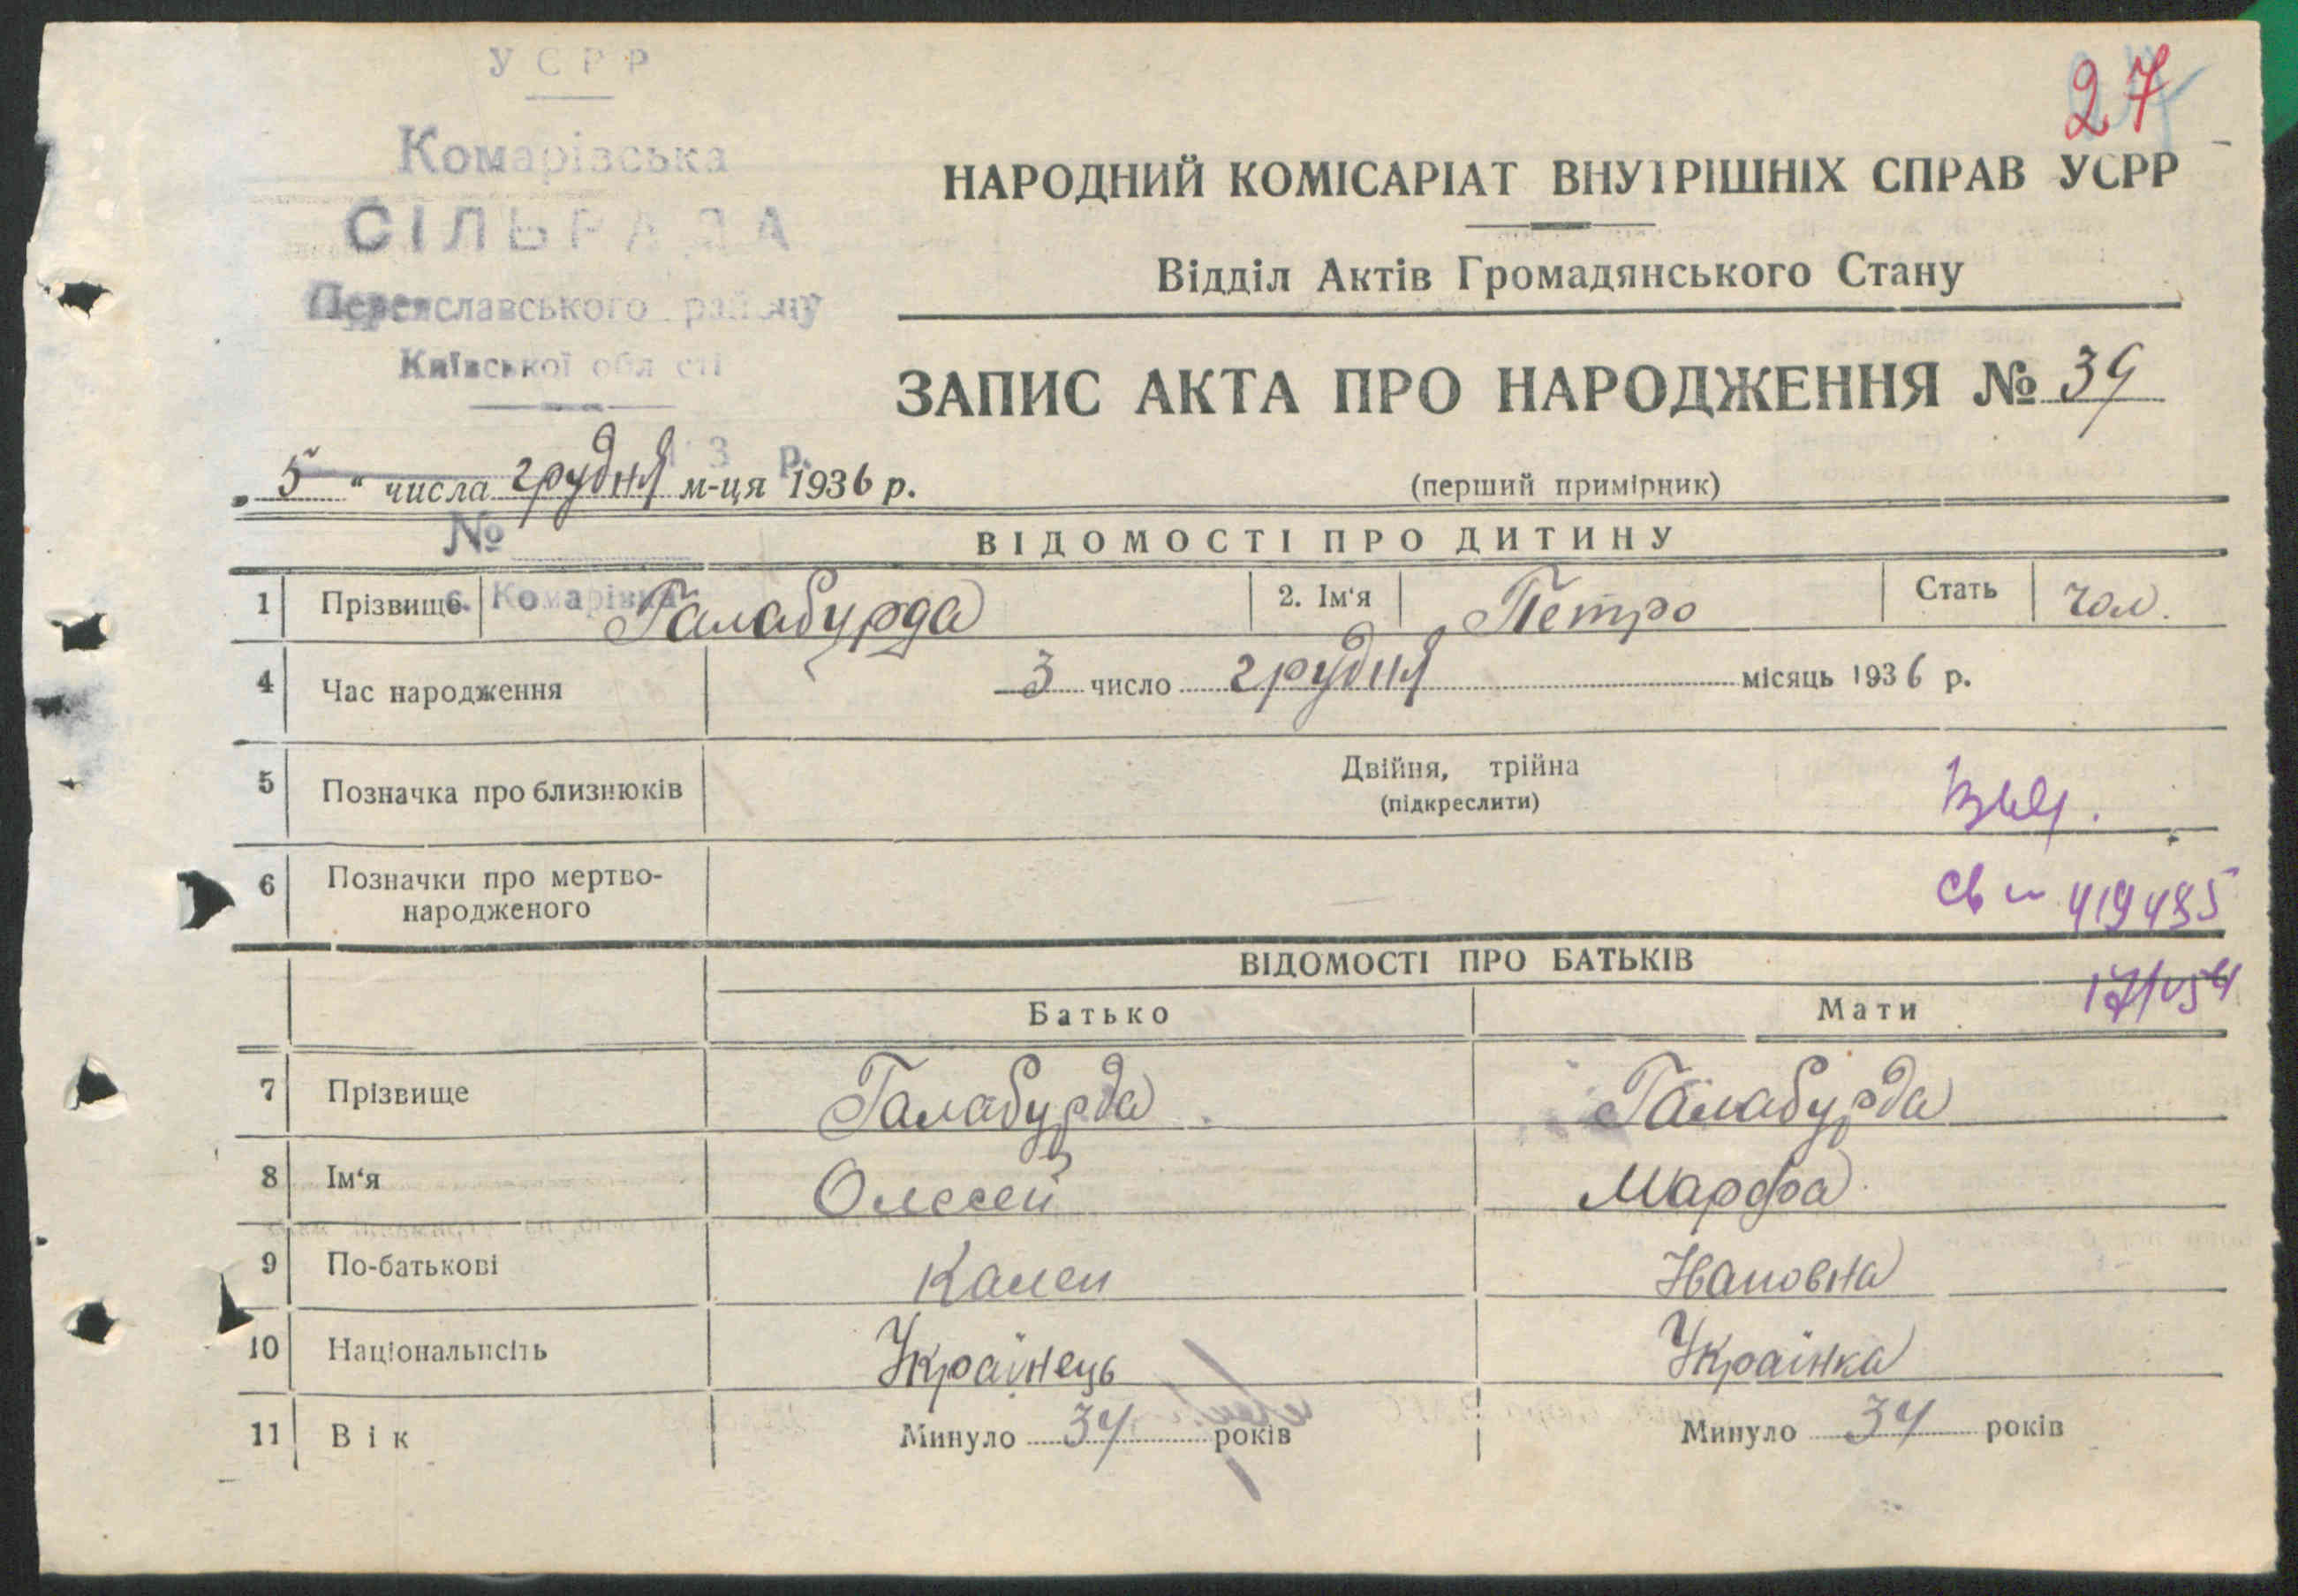 УСРР
27
Комарівська
СІЛЬРАДА
Переяславського району
Київської області
НАРОДНИЙ КОМІСАРІАТ ВНУТРІШНІХ СПРАВ УСРР
Відділ Актів Громадянського Стану
ЗАПИС АКТА ПРО НАРОДЖЕННЯ № 39
„5“ числа грудня м-ця 1936 р.
(перший примірник)
№
с. Комарівка
ВІДОМОСТІ ПРО ДИТИНУ
1 Прізвище Галабурда 2. Ім'я Петро Стать чол.
4 Час народження 3 число грудня місяць 1936 р.
5 Позначка про близнюків Двійня, трійна
(підкреслити)
6 Позначки про мертво-
народженого
419485
ВІДОМОСТІ ПРО БАТЬКІВ
Батько Мати
7 Прізвище Галабурда Галабурда
8 Ім'я Олєсей Марфа
9 По-батькові Кален Івановна
10 Національність Українець Українка
11 Вік Минуло 34 років Минуло 34 років